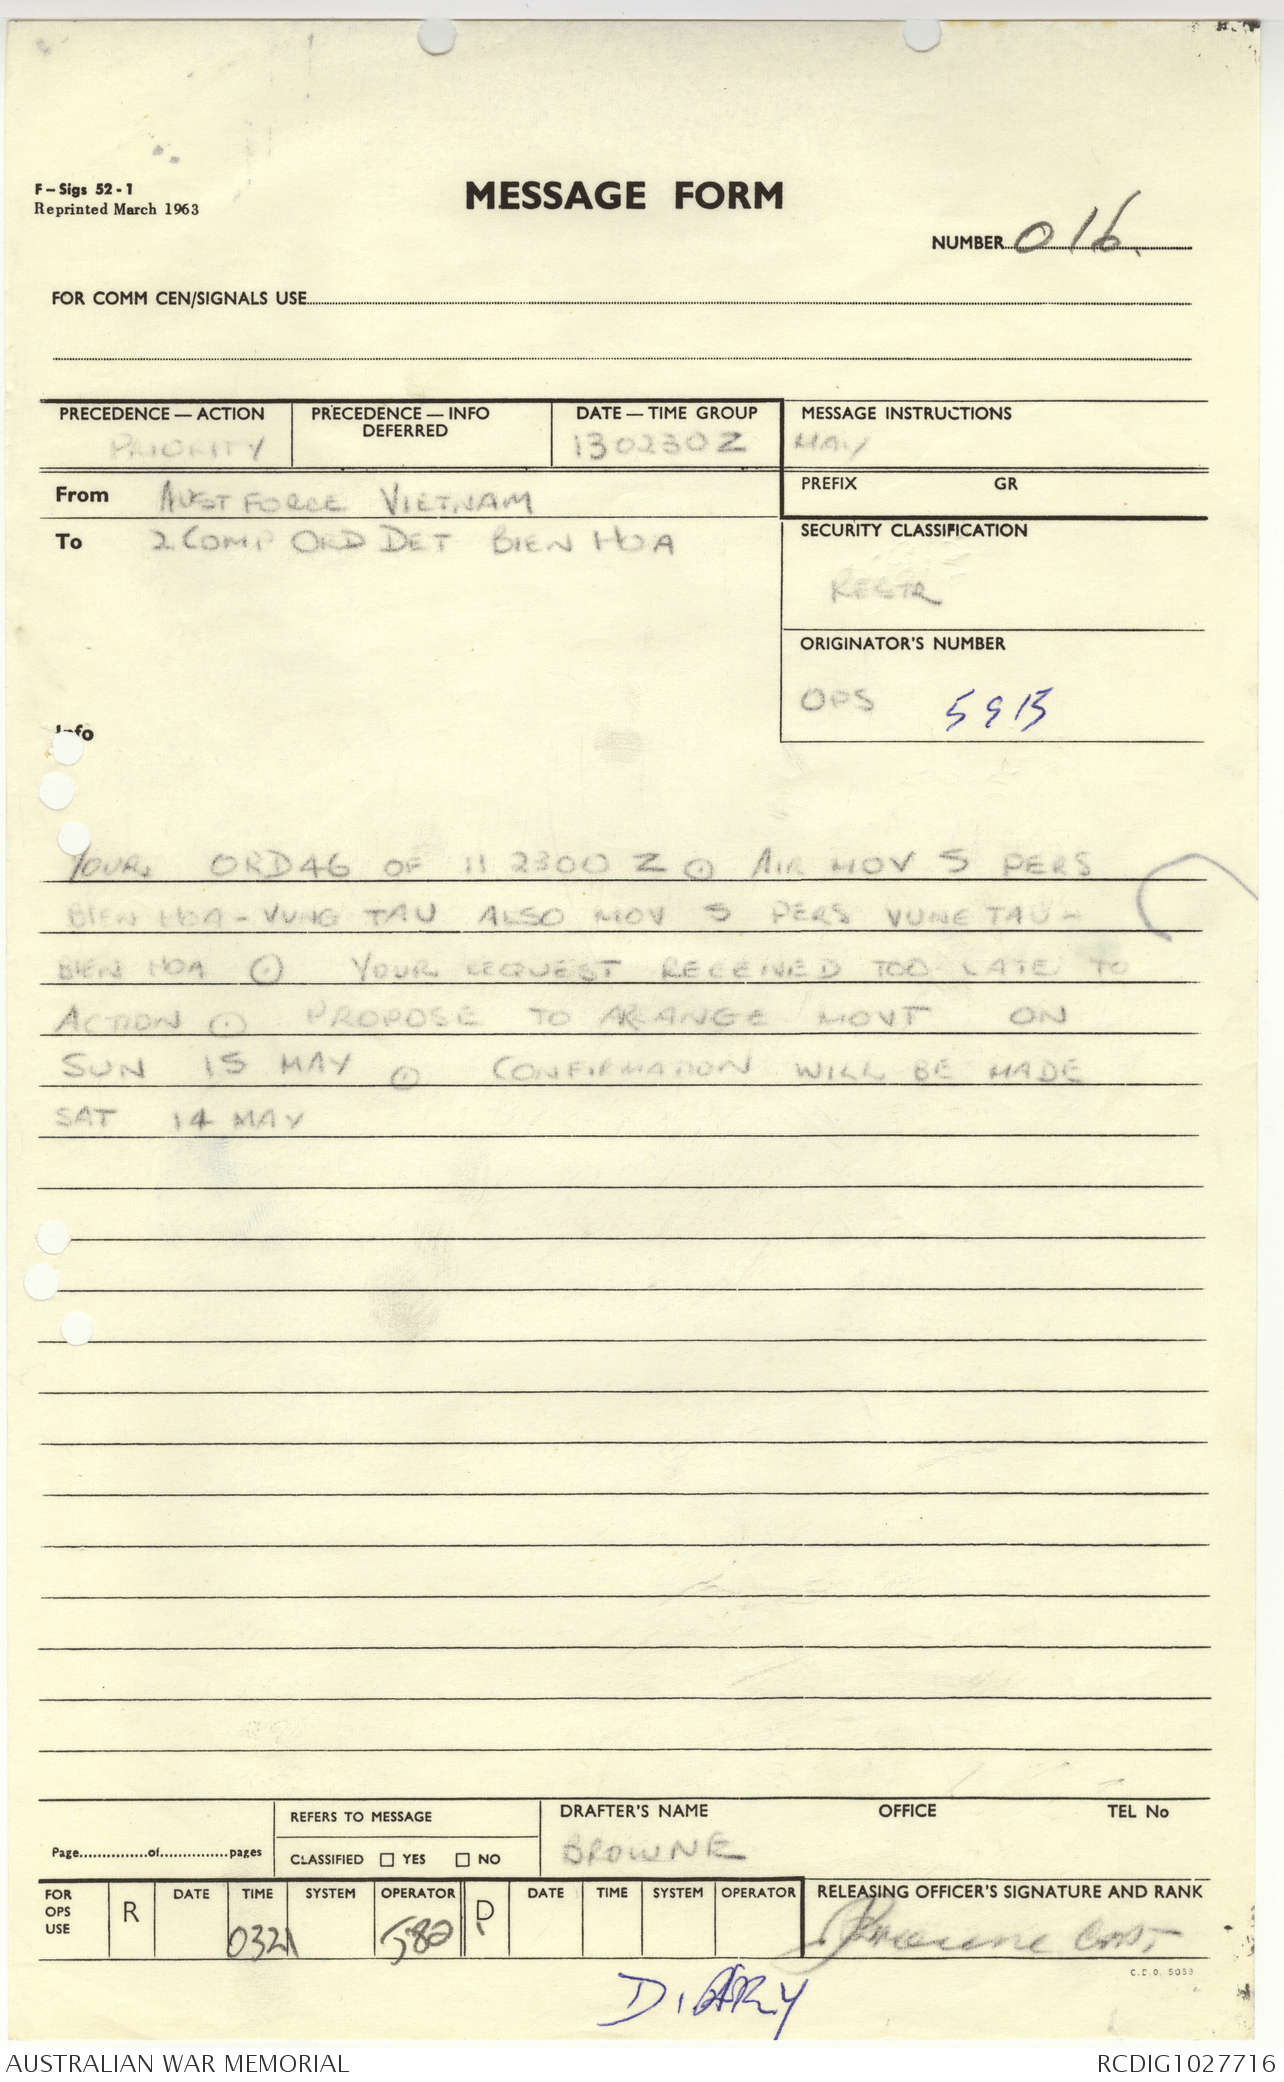 F – Sigs 52 - 1
Reprinted March 1963
MESSAGE FORM
NUMBER 016.
FOR COMM CEN/SIGNALS USE
PRECEDENCE — ACTION
PRIORITY
PRECEDENCE — INFO
DEFERRED
DATE — TIME GROUP
130230Z
MESSAGE INSTRUCTIONS
MAY
From AUST FORCE VIETNAM
PREFIX GR
To 2 COMP ORD DET BIEN HOA
SECURITY CLASSIFICATION
RESTR
ORIGINATOR'S NUMBER
OPS
Info
YOUR ORD46 OF 11 2300 Z ⊙ AIR MOV 5 PERS
BIEN HOA – VUNG TAU ALSO MOV 5 PERS VUNG TAU –
BIEN HOA ⊙ YOUR REQUEST RECEIVED TOO LATE TO
ACTION ⊙ PROPOSE TO ARANGE MOVT ON
SUN 15 MAY ⊙ CONFIRMATION WILL BE MADE
SAT 14 MAY
Page of pages
REFERS TO MESSAGE
CLASSIFIED ☐ YES ☐ NO
DRAFTER'S NAME OFFICE TEL No
BROWNE
FOR
OPS
USE
R DATE TIME SYSTEM OPERATOR
0321
D DATE TIME SYSTEM OPERATOR
RELEASING OFFICER'S SIGNATURE AND RANK
Browne CAPT
C.D.O. 5053
DIARY
AUSTRALIAN WAR MEMORIAL
RCDIG1027716